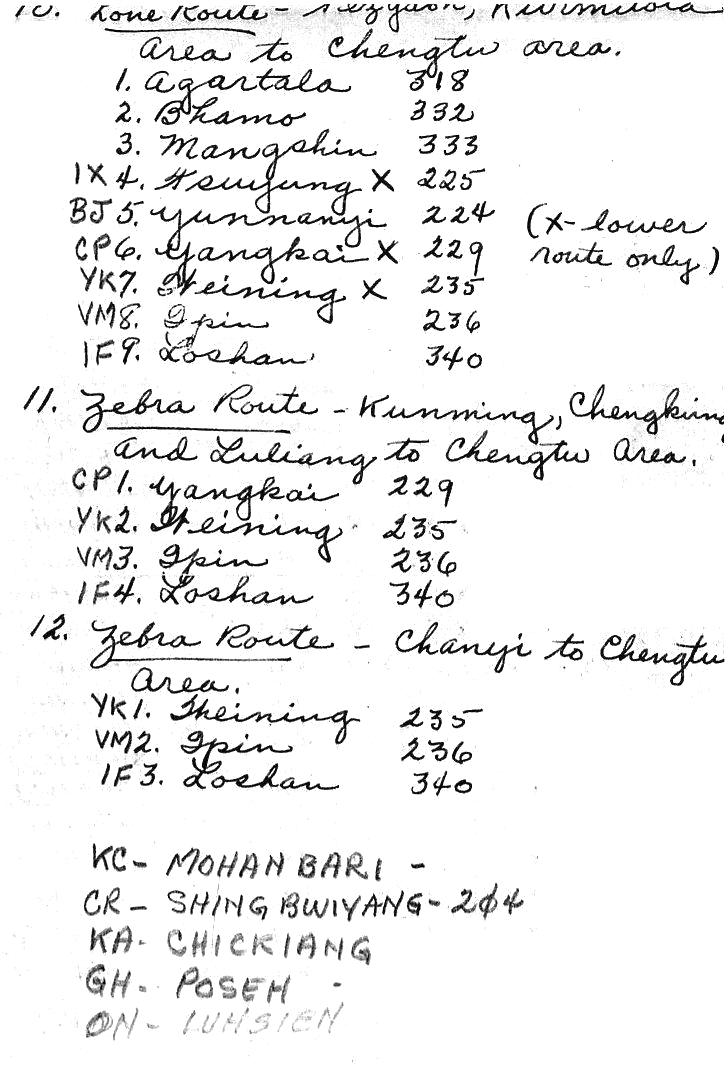 10. Zone Route - Tezgaon, Kurmitola
Area to Chengtu area.
1. Agartala 318
2. Bhamo 332
3. Mangshin 333
IX 4. Hsuyung X 225
BJ 5. Yunnanyi 224 (X-lower
CP 6. Yangkai X 229 route only)
YK 7. Weining X 235
VM 8. Ipin 236
IF 9. Loshan 340
11. Zebra Route - Kunming, Chengkung
and Luliang to Chengtu Area.
CP 1. Yangkai 229
YK 2. Weining 235
VM 3. Ipin 236
IF 4. Loshan 340
12. Zebra Route - Chanyi to Chengtu
Area.
YK 1. Weining 235
VM 2. Ipin 236
IF 3. Loshan 340
KC - MOHAN BARI -
CR - SHING BWIYANG - 204
KA - CHICKIANG
GH - POSEH -
ON - LUHSIEN